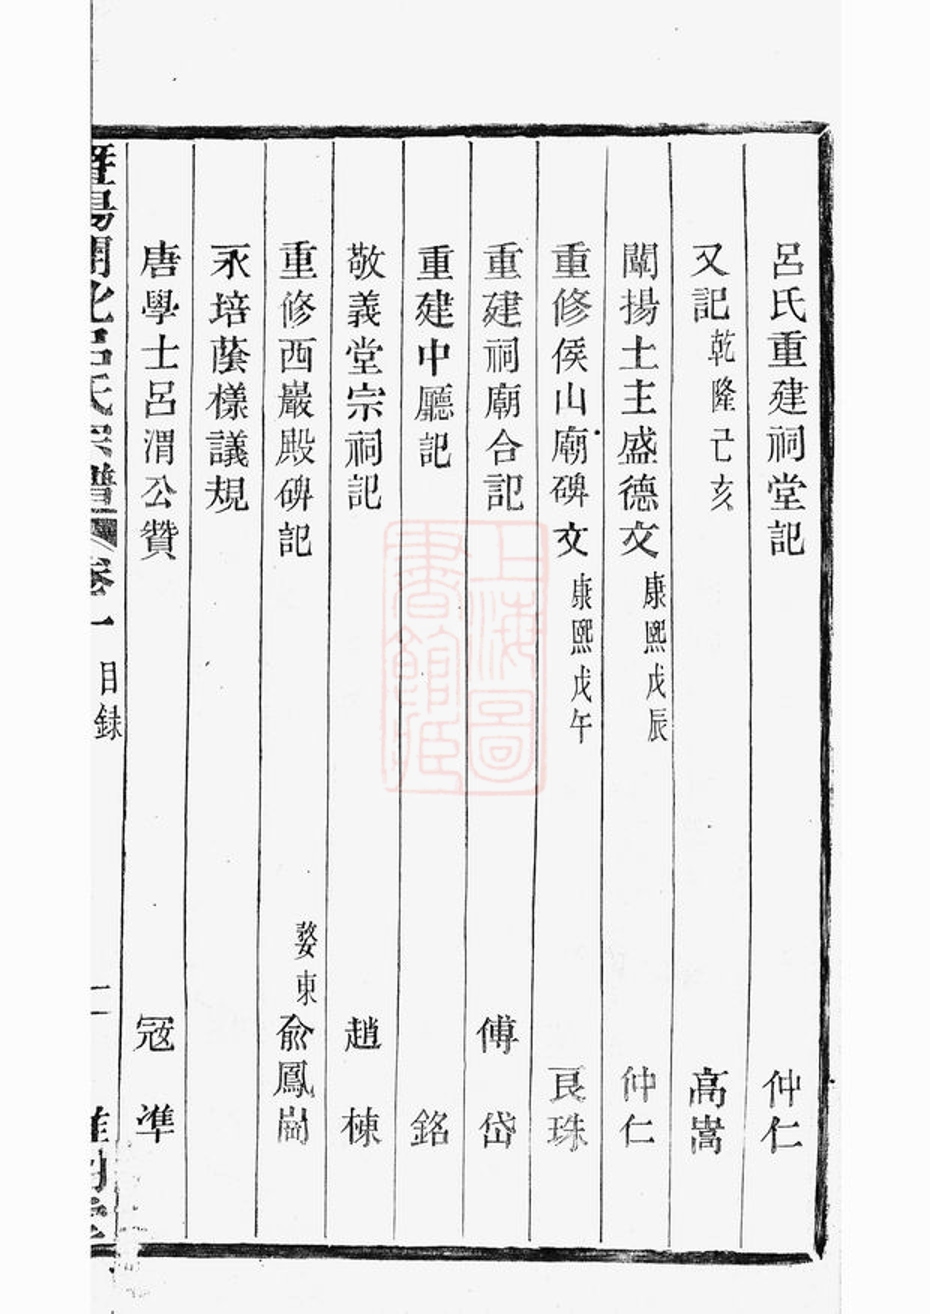 呂氏重建祠堂記 仲仁
又記 乾隆己亥 高嵩
闡揚土主盛德文 康熙戊辰 仲仁
重修侯山廟碑文 康熙戊午 良珠
重建祠廟合記 傅岱
重建中廳記 銘
敬義堂宗祠記 趙棟
重修西巖殿碑記 婺東俞鳳崗
永培蔭樣議規
唐學士呂渭公贊 冦準
暨陽開化呂氏宗譜 卷一 目録 二
上海圖書館藏